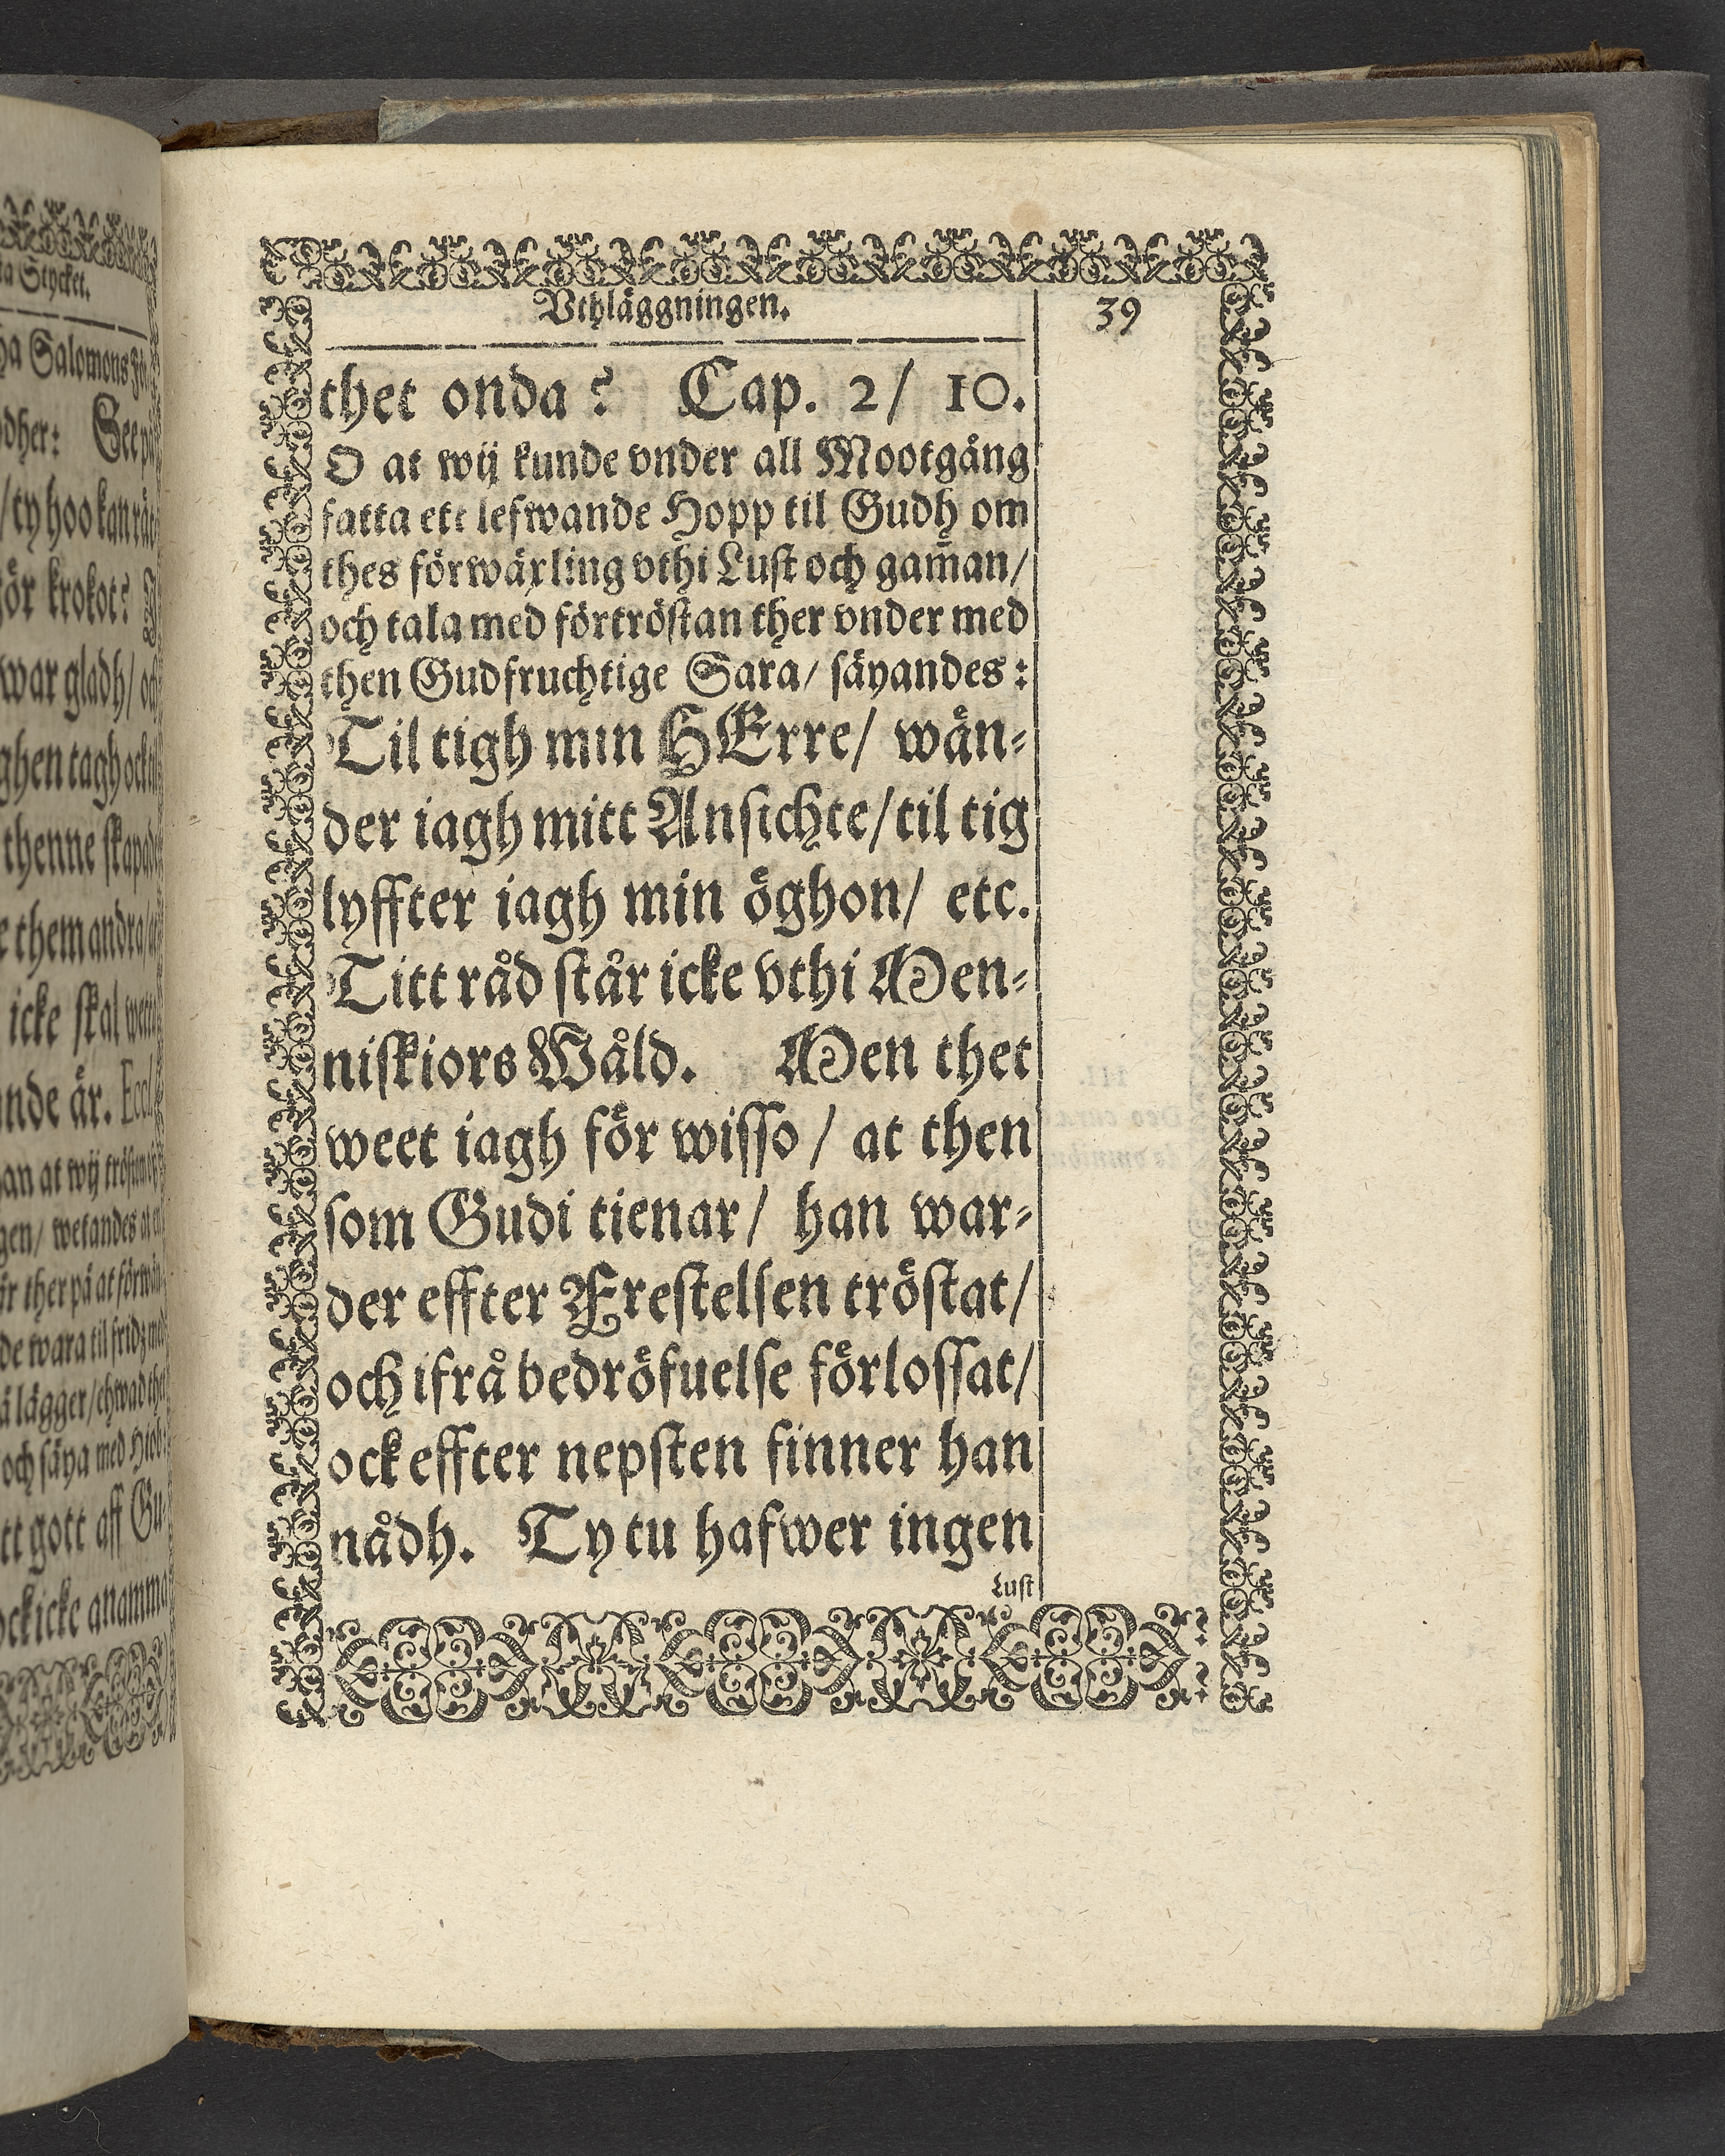 ta Stycket.
ha Salomons
dher: See
/ ty hoo kan
ör krokot?
war gladh/
ghen tagh
thenne
e them andra/
icke skal
nde är. Eccl.
an at wij
gen/ wetandes at
ir ther på at
de wara til fridz
å lägger/ ehwad
och säya med Hiob:
tt gott aff Gu-
ock icke anamma
Vthläggningen.
39
thet onda? Cap. 2/ 10.
O at wij kunde vnder all Mootgång
fatta ett lefwande Hopp til Gudh om
thes förwäxling vthi Lust och gam̃an/
och tala med förtröstan ther vnder med
then Gudfruchtige Sara/ säyandes:
Til tigh min HErre/ wän-
der iagh mitt Ansichte/ til tig
lyffter iagh min öghon/ etc.
Titt råd står icke vthi Men-
niskiors Wåld. Men thet
weet iagh för wisso/ at then
som Gudi tienar/ han war-
der effter Frestelsen tröstat/
och ifrå bedröfuelse förlossat/
ock effter nepsten finner han
nådh. Ty tu hafwer ingen
Lust